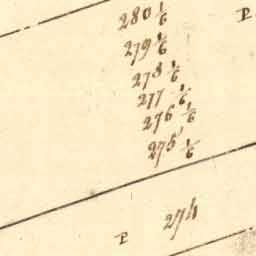 280 1/6
P.
279 1/6
278 1/6
277 1/6
276 1/6
275 1/6
274
P